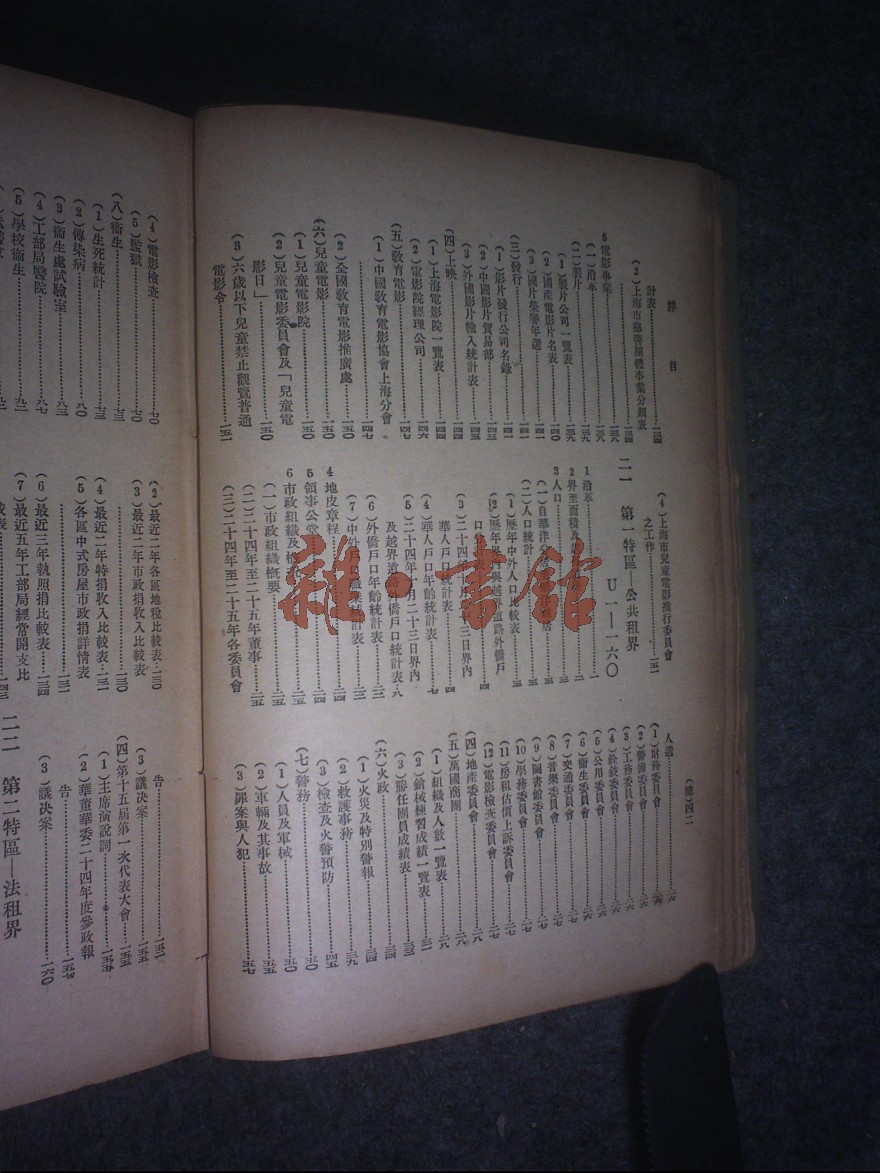 詳目
(總)四二
計表……一三四
(2)上海市慈善團體事業分類表
6 電影事業……一三八
(一)沿革……一三八
(二)製片……一三九
(1)製片公司一覽表……一三九
(2)國產電影片名表……一四〇
(3)國片榮譽年選……一四一
(三)發行……一四一
(1)影片發行公司名錄……一四一
(2)中國影片貿易部……一四三
(3)外國影片輸入統計表……一四四
(四)上映……一四四
(1)上海電影院一覽表……一四四
(2)電影院經理公司……一四六
(五)教育電影……一四七
(1)中國教育電影協會上海分會
……一四七
(2)全國教育電影推廣處……一五〇
(六)兒童電影……一五〇
(1)兒童電影院……一五〇
(2)兒童電影委員會及「兒童電
影日」……一五〇
(3)六歲以下兒童禁止觀覽普通
電影令……一五一
(4)上海市兒童電影推行委員會
之工作……一五一
二一 第一特區—公共租界
U一—一六〇
1 沿革……一
2 界至面積及
3 人口
(一)自華洋分
(二)人口統計……三
(1)歷年中外人口比較表……三
(2)歷年界內與越界道路外僑戶
口
(3)二十四年十月二十三日界內
華人戶口統計表……四
(4)華人戶口年齡統計表……七
(5)二十四年十月二十三日界內
及越界道路外僑戶口統計表……八
(6)外僑戶口年齡統計表
(7)中外戶口職業統計表
4 地皮章程……一四
5 領事公堂……二四
6 市政組織及概
(一)市政組織概要……二五
(二)二十四年至二十五年董事……二五
(三)二十四年至二十五年各委員會
人選……二六
(1)財務委員會……二六
(2)警務委員會……二六
(3)工務委員會……二六
(4)銓敘委員會……二六
(5)公用委員會……二六
(6)衛生委員會……二六
(7)交通委員會……二七
(8)音樂委員會……二七
(9)圖書館委員會……二七
(10)學務委員會……二七
(11)房租估價上訴委員會……二七
(12)電影檢查委員會……二七
(四)地產委員會……二八
(五)萬國商團……二八
(1)組織及人數一覽表……二八
(2)鎗械練習成績一覽表……三一
(3)勝任團員成績表……三三
(六)火政……三四
(1)火災及特別警報……三四
(2)救護事務……三九
(3)檢查及火警預防……四五
(七)警務……五〇
(1)人員及軍械……五〇
(2)車輛及其事故……五五
(3)罪案與人犯……五七
(4)電影檢查……七〇
(5)監獄……七〇
(八)衛生……七三
(1)生死統計……七三
(2)傳染病……八〇
(3)衛生處試驗室……八三
(4)工部局醫院……八七
(5)學校衛生……九二
(2)最近二年各區地稅比較表……一三〇
(3)最近二年市捐收入比較表
……一三〇
(4)最近二年特捐收入比較表……一三一
(5)各區中式房屋市政捐詳情表
……一三二
(6)最近三年執照捐比較表……一三四
(7)最近五年工部局經常開支比
較表……一四三
告……一五二
(3)議決案……一五五
(四)第十五屆第一次代表大會……一五五
(1)主席演說詞……一五五
(2)華董華委二十四年度參政報
告……一五七
(3)議決案……一六〇
二二 第二特區—法租界
雜·書館